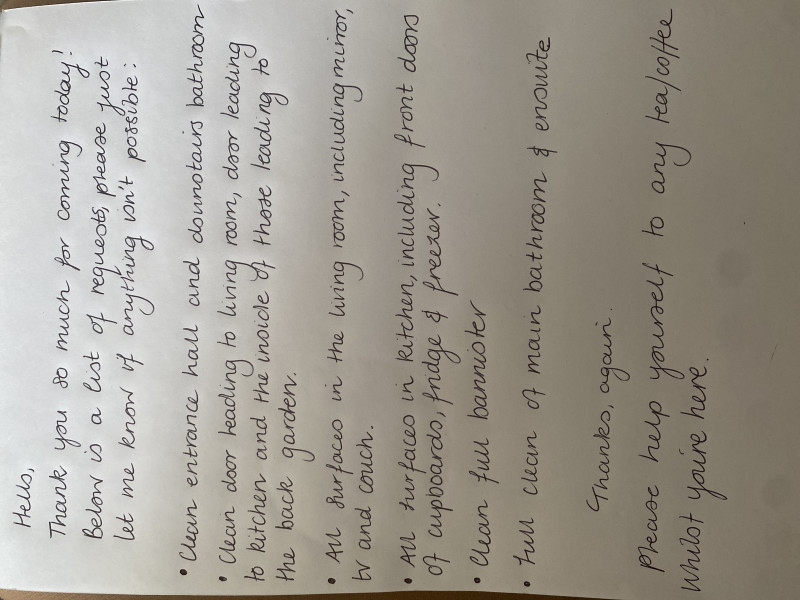 Hello,
Thank you so much for coming today!
Below is a list of requests, please just
let me know if anything isn't possible:
• Clean entrance hall and downstairs bathroom
• Clean door leading to living room, door leading
to kitchen and the inside of those leading to
the back garden.
• All surfaces in the living room, including mirror,
tv and couch.
• All surfaces in kitchen, including front doors
of cupboards, fridge & freezer.
• Clean full bannister
• Full clean of main bathroom & ensuite
Thanks, again.
Please help yourself to any tea/coffee
whilst you're here.